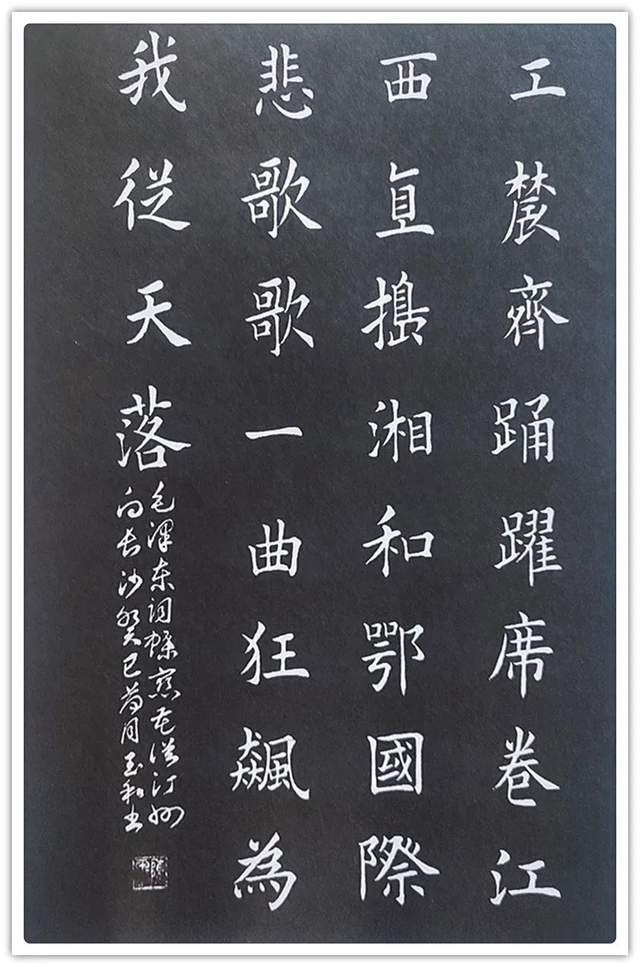 工辳齊踊躍席卷江
西直搗湘和鄂國際
悲歌歌一曲狂飆為
我從天落
毛澤東詞蝶戀花從汀州
向長沙癸巳月玉和書